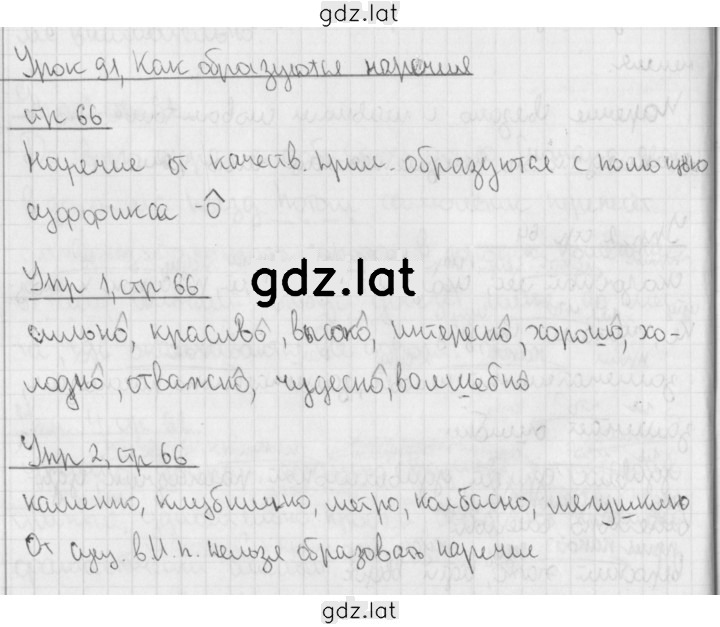 gdz.lat
Урок 91, Как образуются наречия
стр 66
Наречие от качеств. прил. образуются с помощью
суффикса -о
Упр 1, стр 66
gdz.lat
сильно, красиво, высоко, интересно, хорошо, хо-
лодно, отважно, чудесно, волшебно
Упр 2, стр 66
каменно, клубнично, метро, колбасно,
От сущ. в И.п. нельзя образовать наречие
gdz.lat